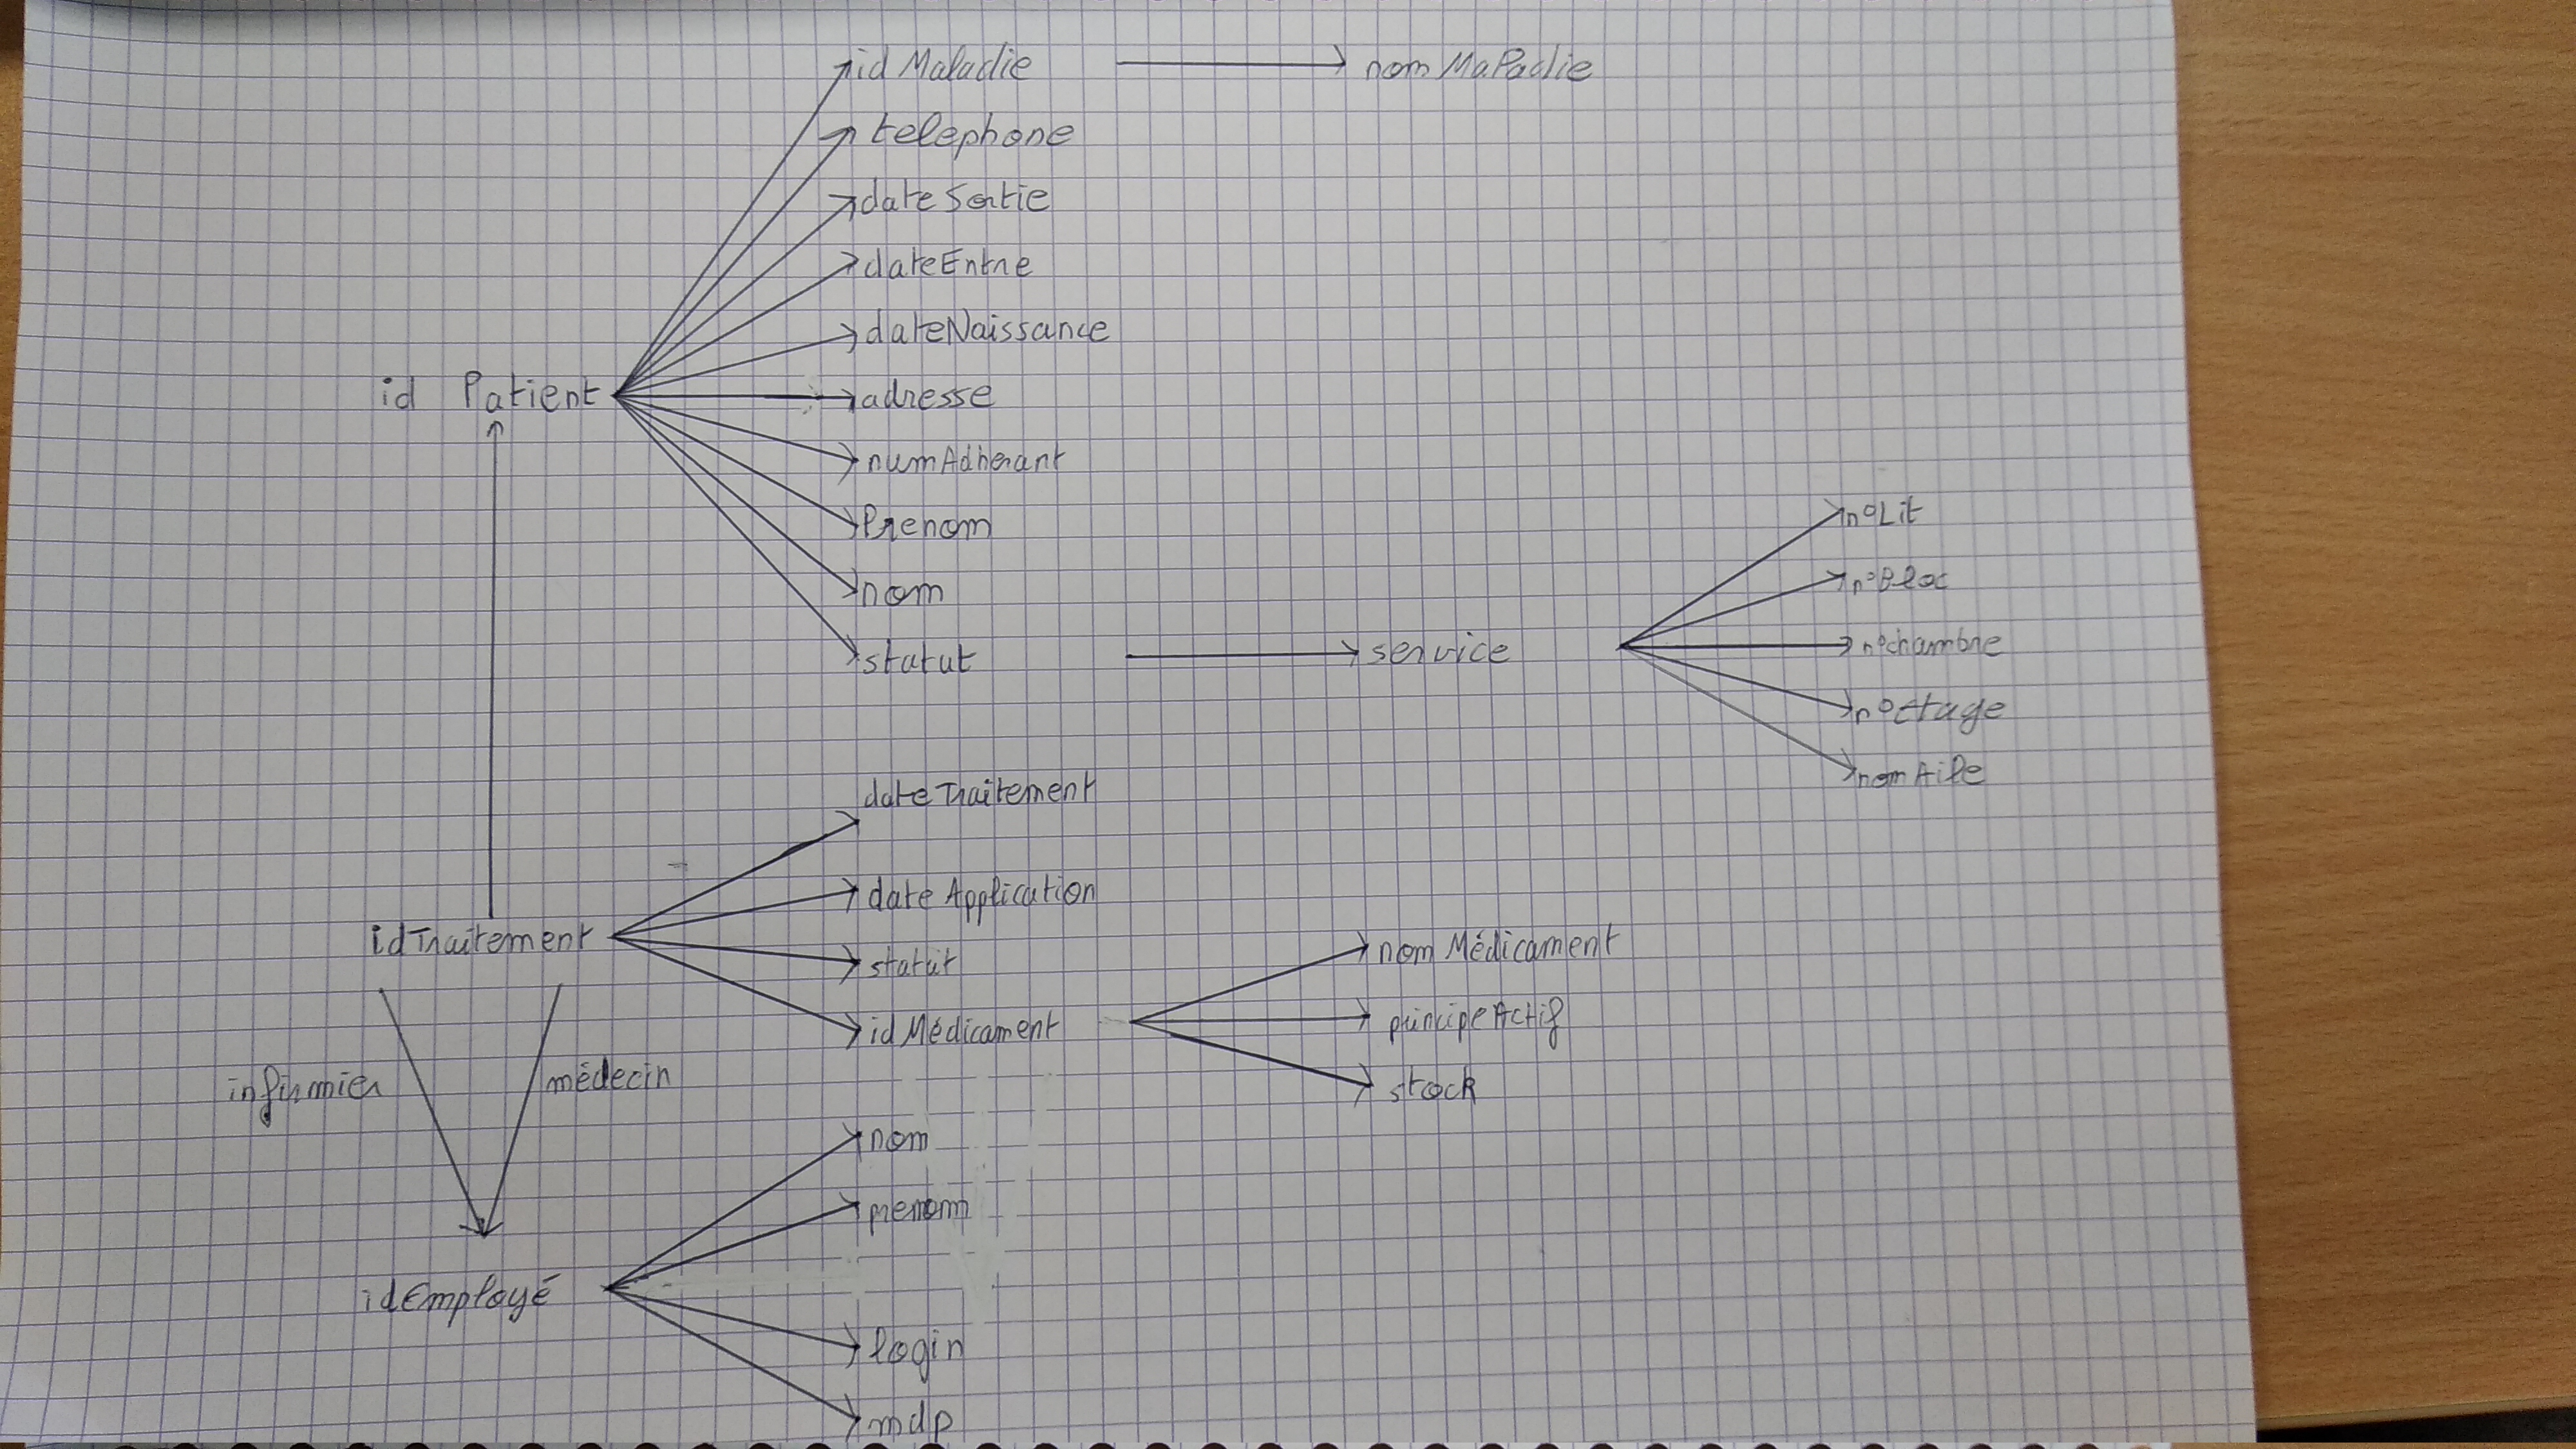 idMaladie nomMaladie
telephone
dateSortie
dateEntre
dateNaissance
id Patient adresse
numAdherant
Prenom
n°Lit
n°Bloc
nom
statut service n°chambre
n°etage
nomAile
dateTraitement
dateApplication
idTraitement statut nomMédicament
idMédicament principeActif
infirmier médecin stock
nom
prenom
idEmployé
login
mdp